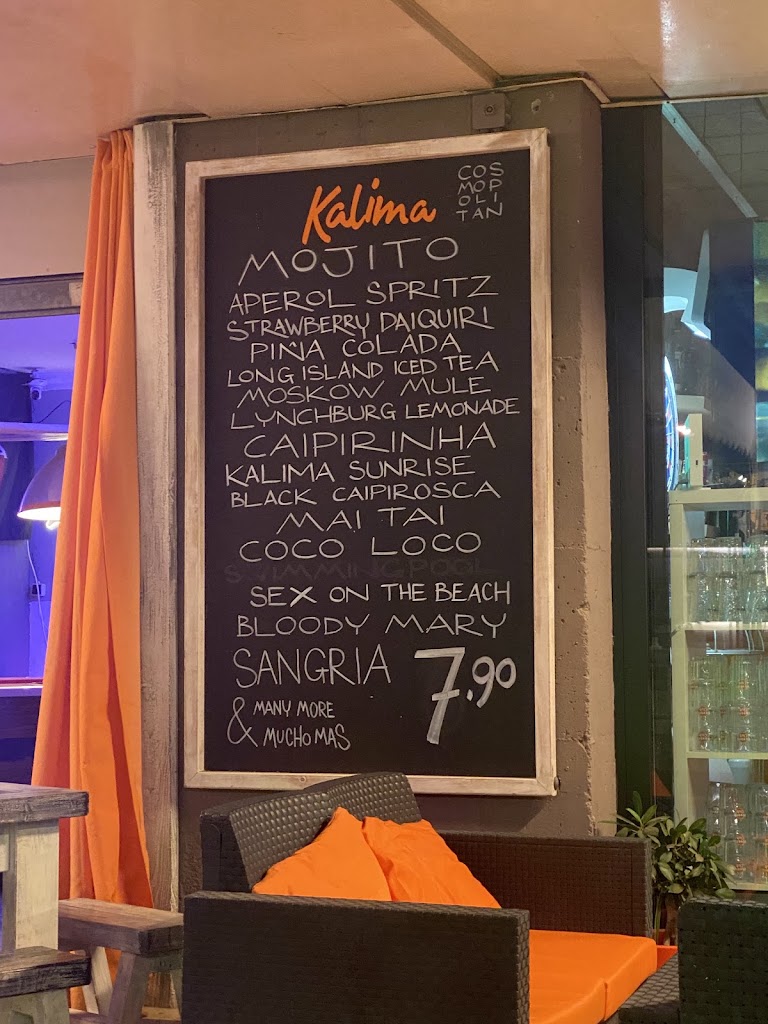 Kalima
COS
MOP
OLI
TAN
MOJITO
APEROL SPRITZ
STRAWBERRY DAIQUIRI
PINA COLADA
LONG ISLAND ICED TEA
MOSKOW MULE
LYNCHBURG LEMONADE
CAIPIRINHA
KALIMA SUNRISE
BLACK CAIPIROSCA
MAI TAI
COCO LOCO
SWIMMINGPOOL
SEX ON THE BEACH
BLOODY MARY
SANGRIA 7.90
& MANY MORE
MUCHO MAS